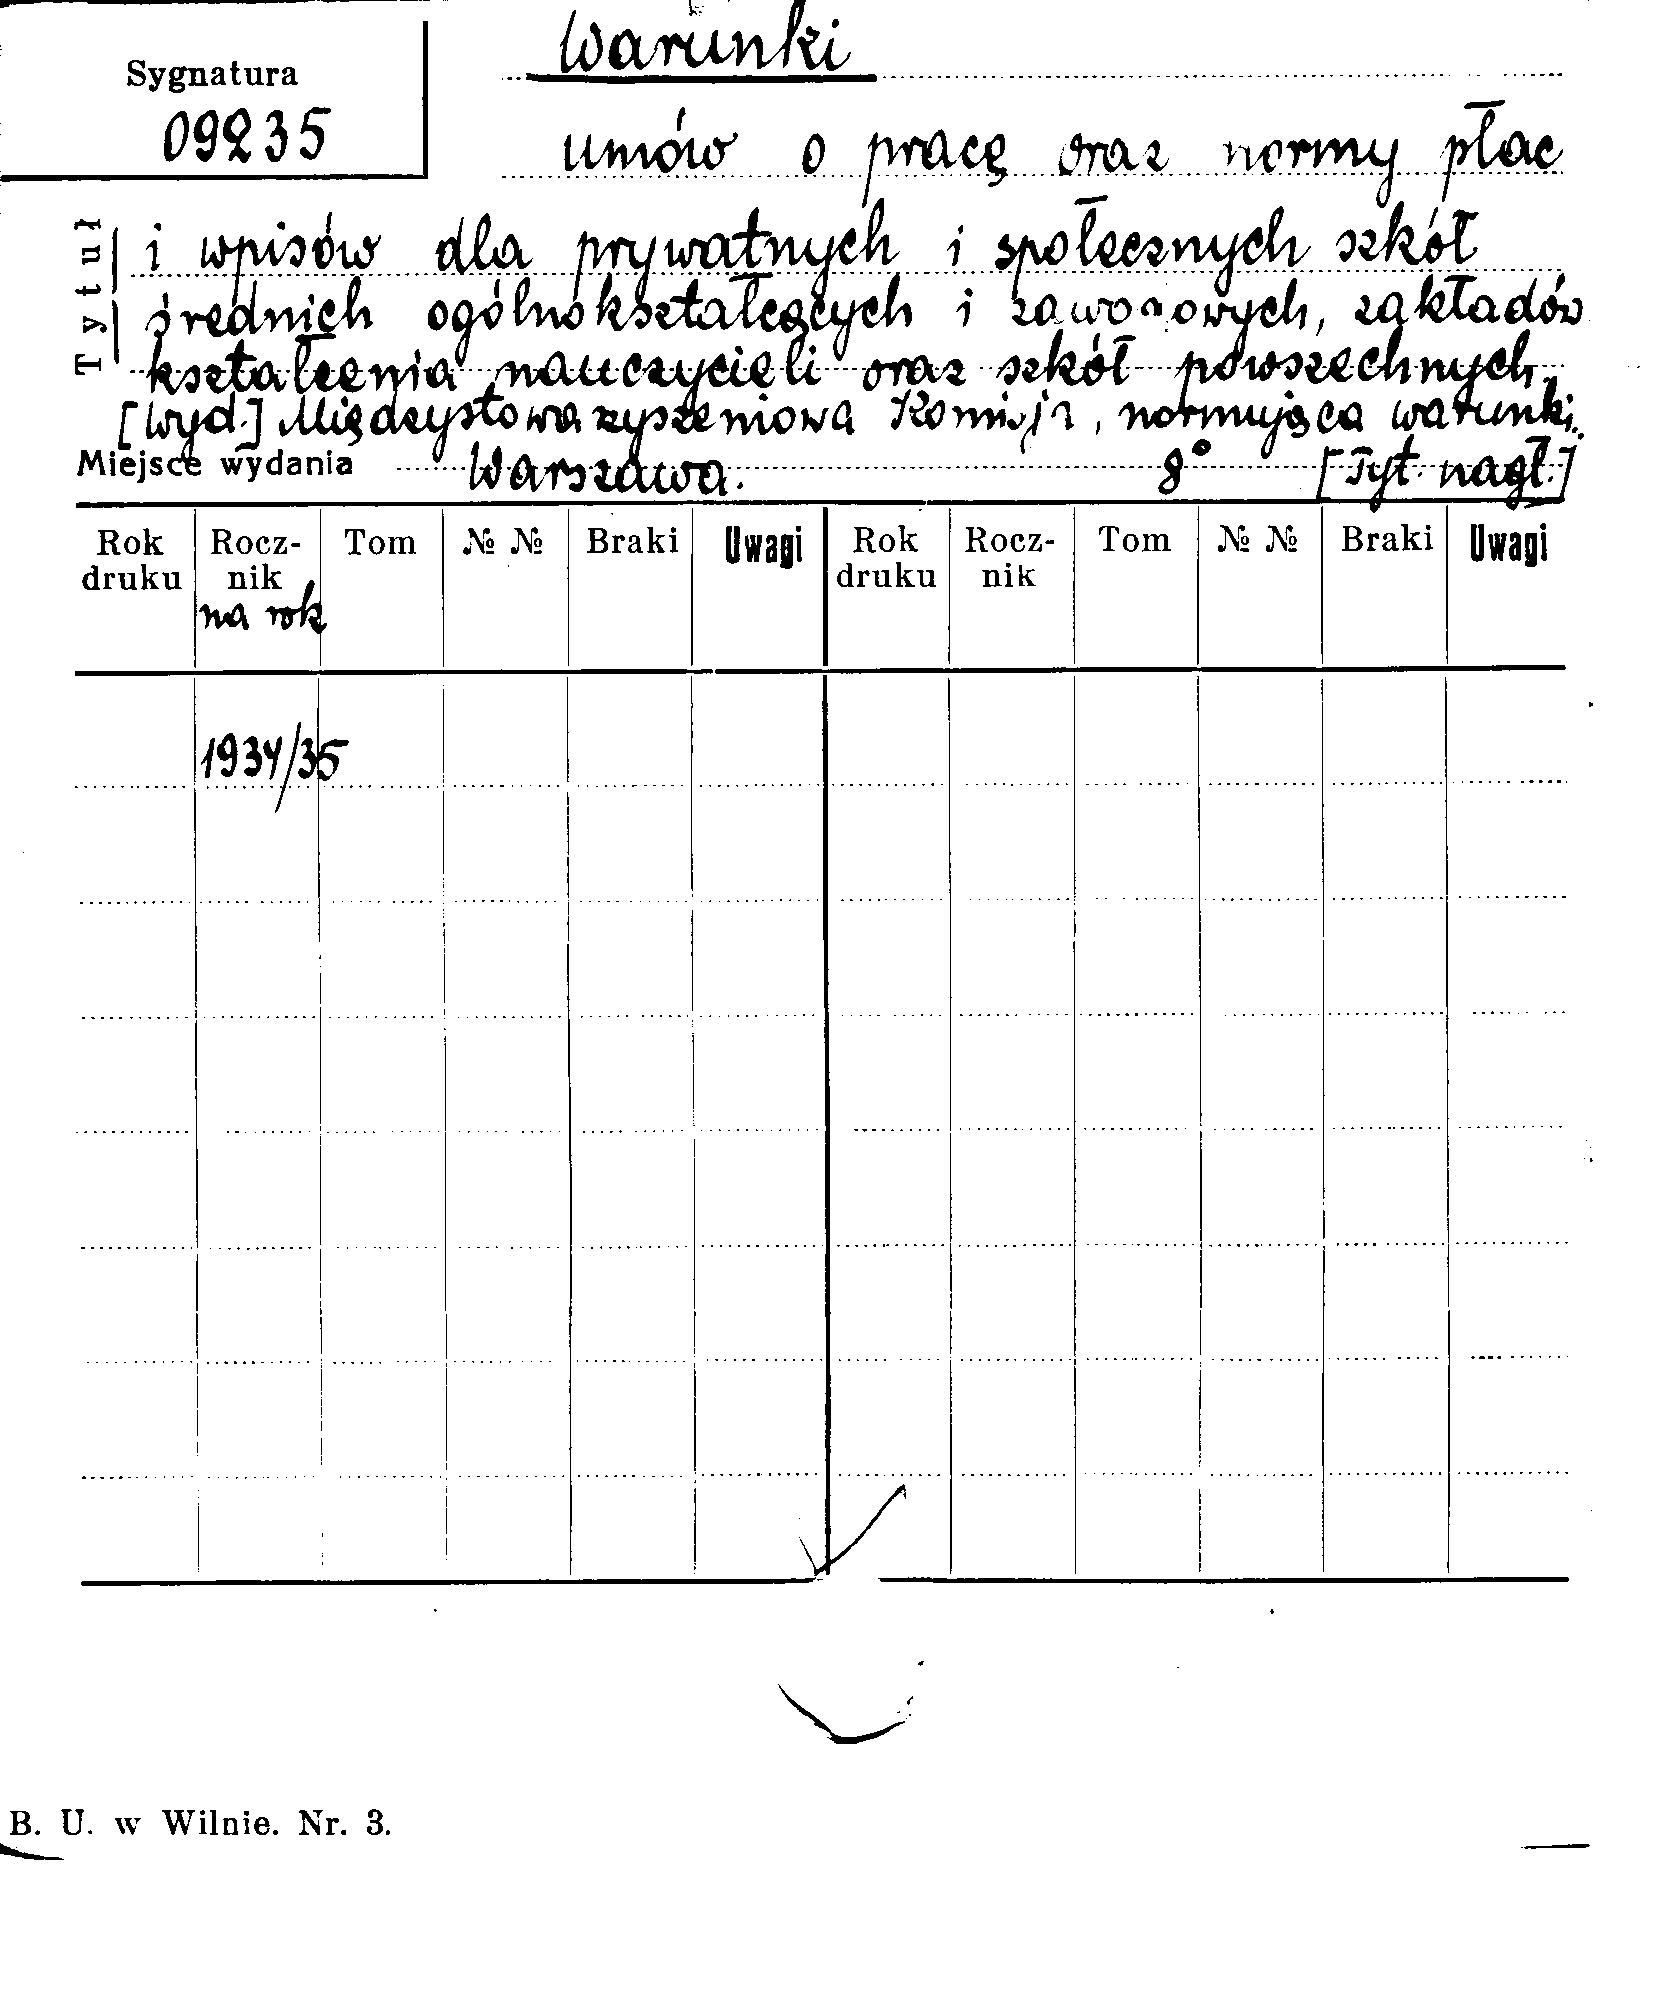 Warunki
Sygnatura
09235
umów o pracę oraz normy płac
Tytuł
i wpisów dla prywatnych i społecznych szkół
średnich ogólnokształcących i zawodowych, zakładów
kształcenia nauczycieli oraz szkół powszechnych,
[Wyd.] Międzystowarzyszeniowa Komisja, normująca warunki..
Miejsce wydania Warszawa. 8° [Tyt. nagł.]
Rok druku Rocz-nik na rok Tom № № Braki Uwagi Rok druku Rocz-nik Tom № № Braki Uwagi
1934/35
B. U. w Wilnie. Nr. 3.